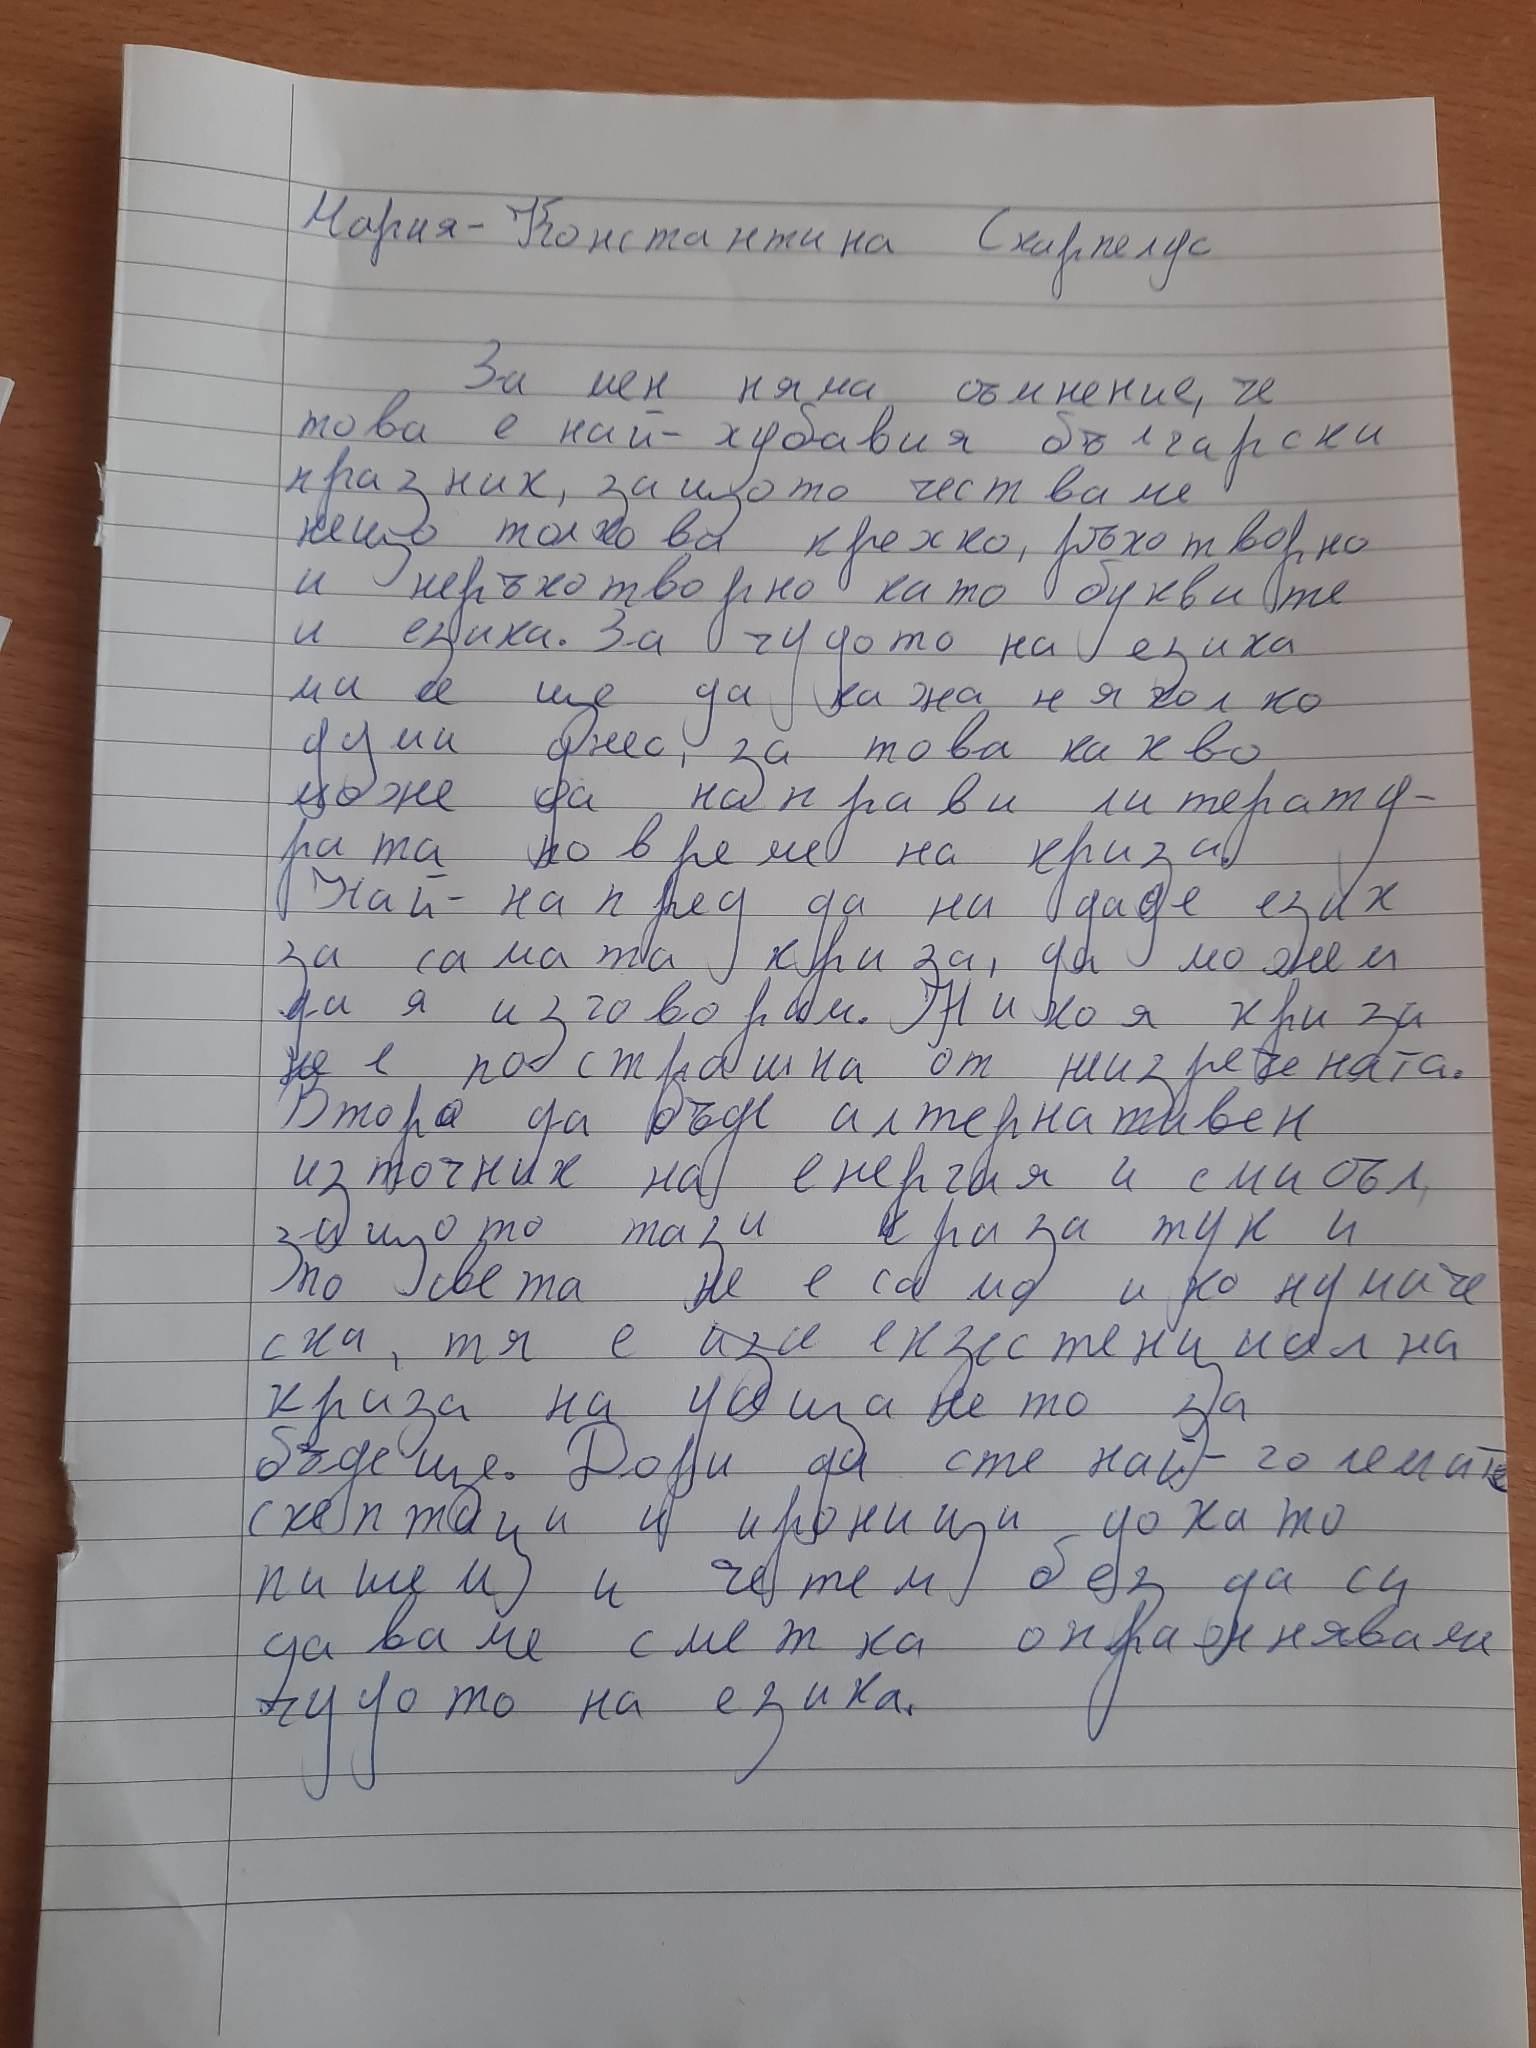 Мария-Константина Скарпелус
За мен няма съмнение, че
това е най-хубавия български
празник, защото честваме
нещо толкова крехко, ръкотворно
и неръкотворно като буквите
и езика. За чудото на езика
ми се ще да кажа няколко
думи днес, за това какво
може да направи литерату-
рата по време на криза.
Най-напред да на даде език
за самата криза, да можем
да я изговорим. Никоя криза
не е пострашна от неизречената.
Второ да бъде алтернативен
източник на енергия и смисъл,
защото тази криза тук и
по света не е само иконумиче
ска, тя е и екзестенциална
криза на усещането за
бъдеще. Дори да сте най-големите
скептици и ироници докато
пишем и четем без да си
даваме сметка опражняваме
чудото на езика.